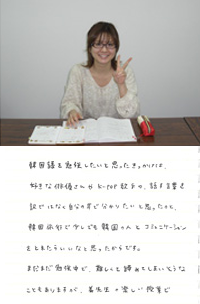 韓国語を勉強したいと思ったきっかけは、
好きな俳優さんやK-POP歌手の、話す言葉を
訳ではなく自分の耳で分かりたいと思ったのと、
韓国旅行で少しでも韓国の人とコミュニケーション
をとれたらいいなと思ったからです。
まだまだ勉強中で、難しくて諦めてしまいそうな
こともありますが、先生の楽しい授業で